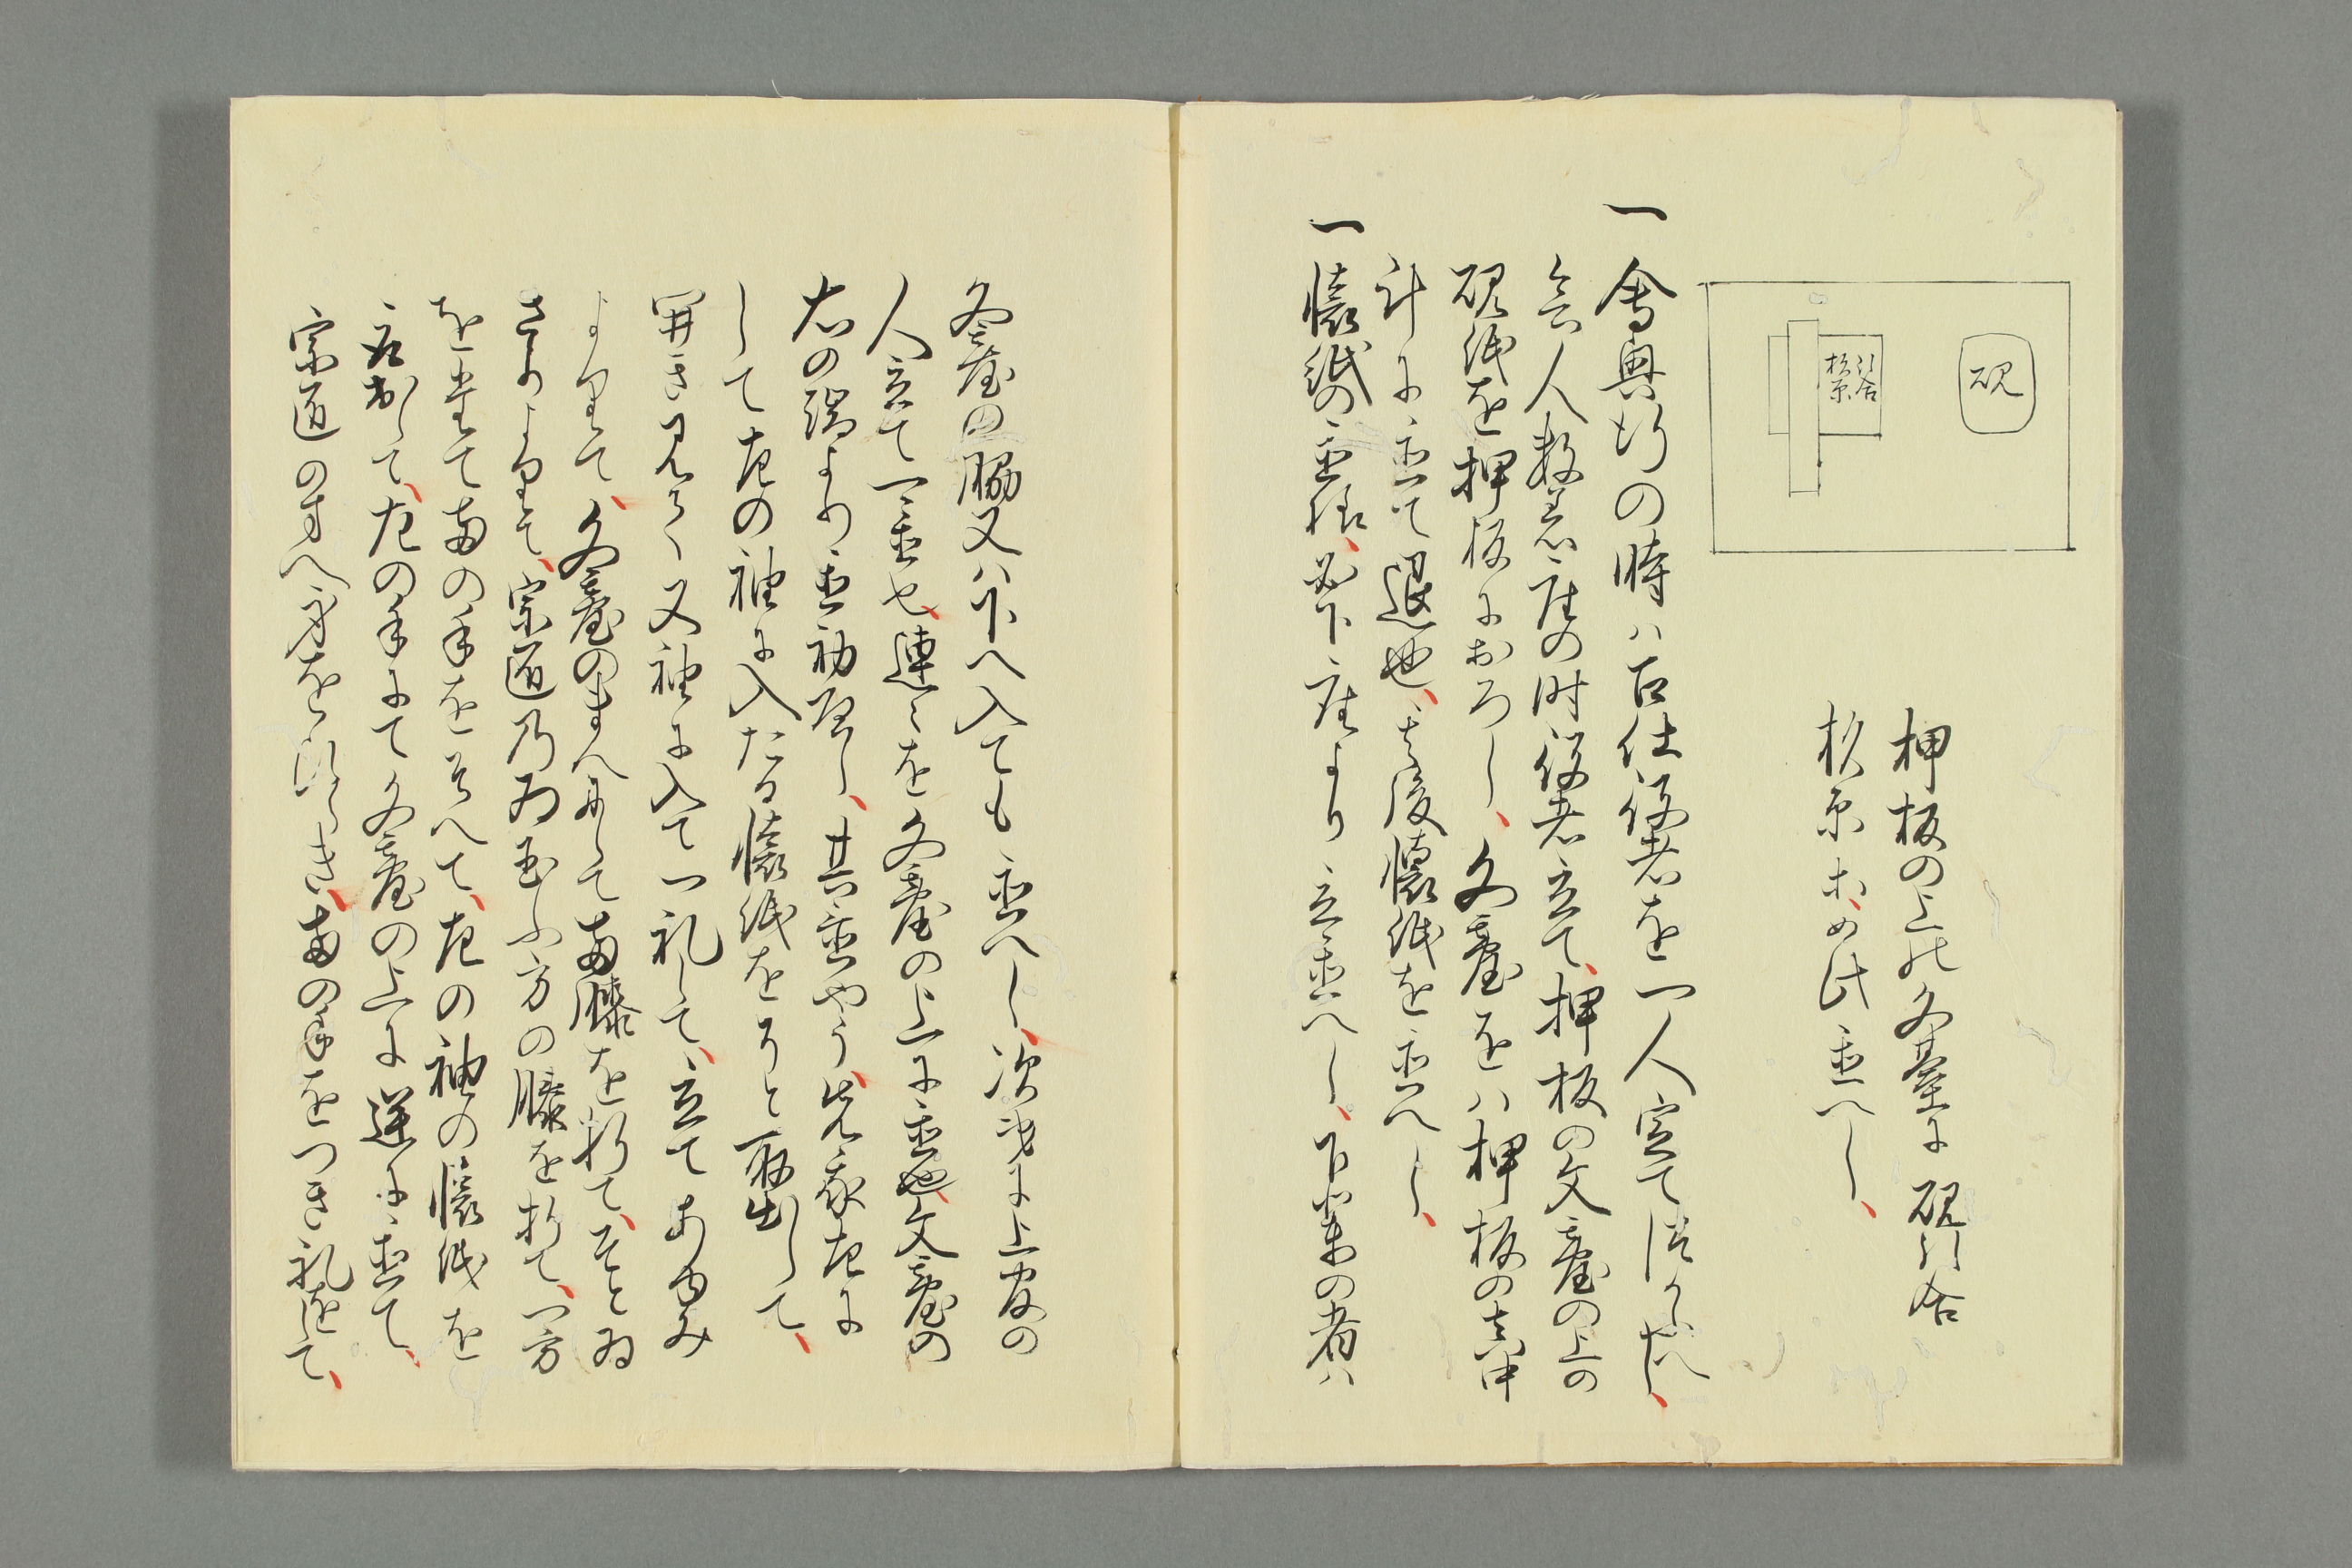 硯
引合
杉原
押板の上の文臺に硯引合
杉原おめ此置へし、
一會興行の時ハ召仕役者を一人定て
會人数着座の時役者立て、押板の文臺の上の
硯紙を押板におろし、文臺をハ押板の真中
計に置て退也、其後懐紙を置へし、
一懐紙の置様、必下座より立置へし、下輩の者ハ
文臺の脇又ハ下へ入ても置へし、次第に上座の
人立て一重也、連々を文臺の上に置也、文臺の
右の端より置初へし、其置やう、先我左に
して左の袖に入たる懐紙をそと取出して、
開き見て又袖に入て一礼して、立てあゆみ
よりて、文臺のまへにて両膝を折て、そとゐ
さりよりて、宗匠乃ゐ玉ふ方の膝を折て、一方
を立て両の手をそへて、左の袖の懐紙を
取出して、左の手にて文臺の上に逆に置て、
宗匠の方へ身をひらき、両の手をつき礼をして、